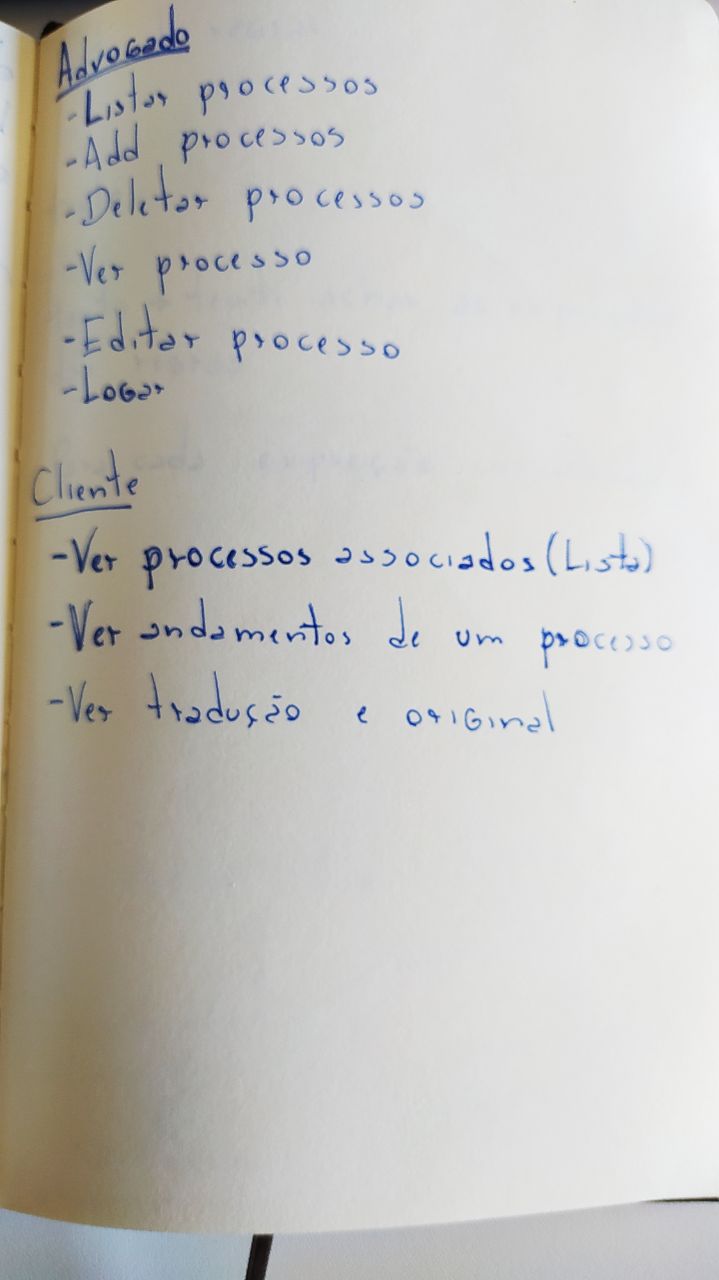 Advogado
-Listar processos
-Add processos
-Deletar processos
-Ver processo
-Editar processo
-Logar
Cliente
-Ver processos associados (Lista)
-Ver andamentos de um processo
-Ver tradução e original